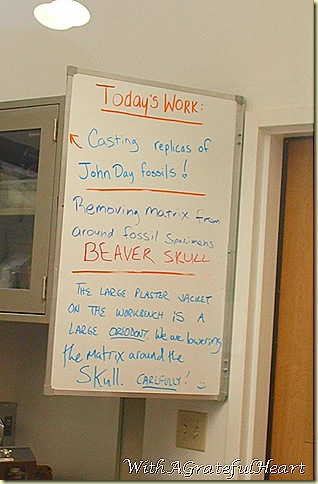 TODAY'S WORK:
Casting replicas of
John Day Fossils!
Removing matrix from
around fossil specimens
BEAVER SKULL
THE LARGE PLASTER JACKET
ON THE WORKBENCH IS A
LARGE OREODONT. We are lowering
the matrix around the
Skull. CAREFULLY!
WithAGratefulHeart